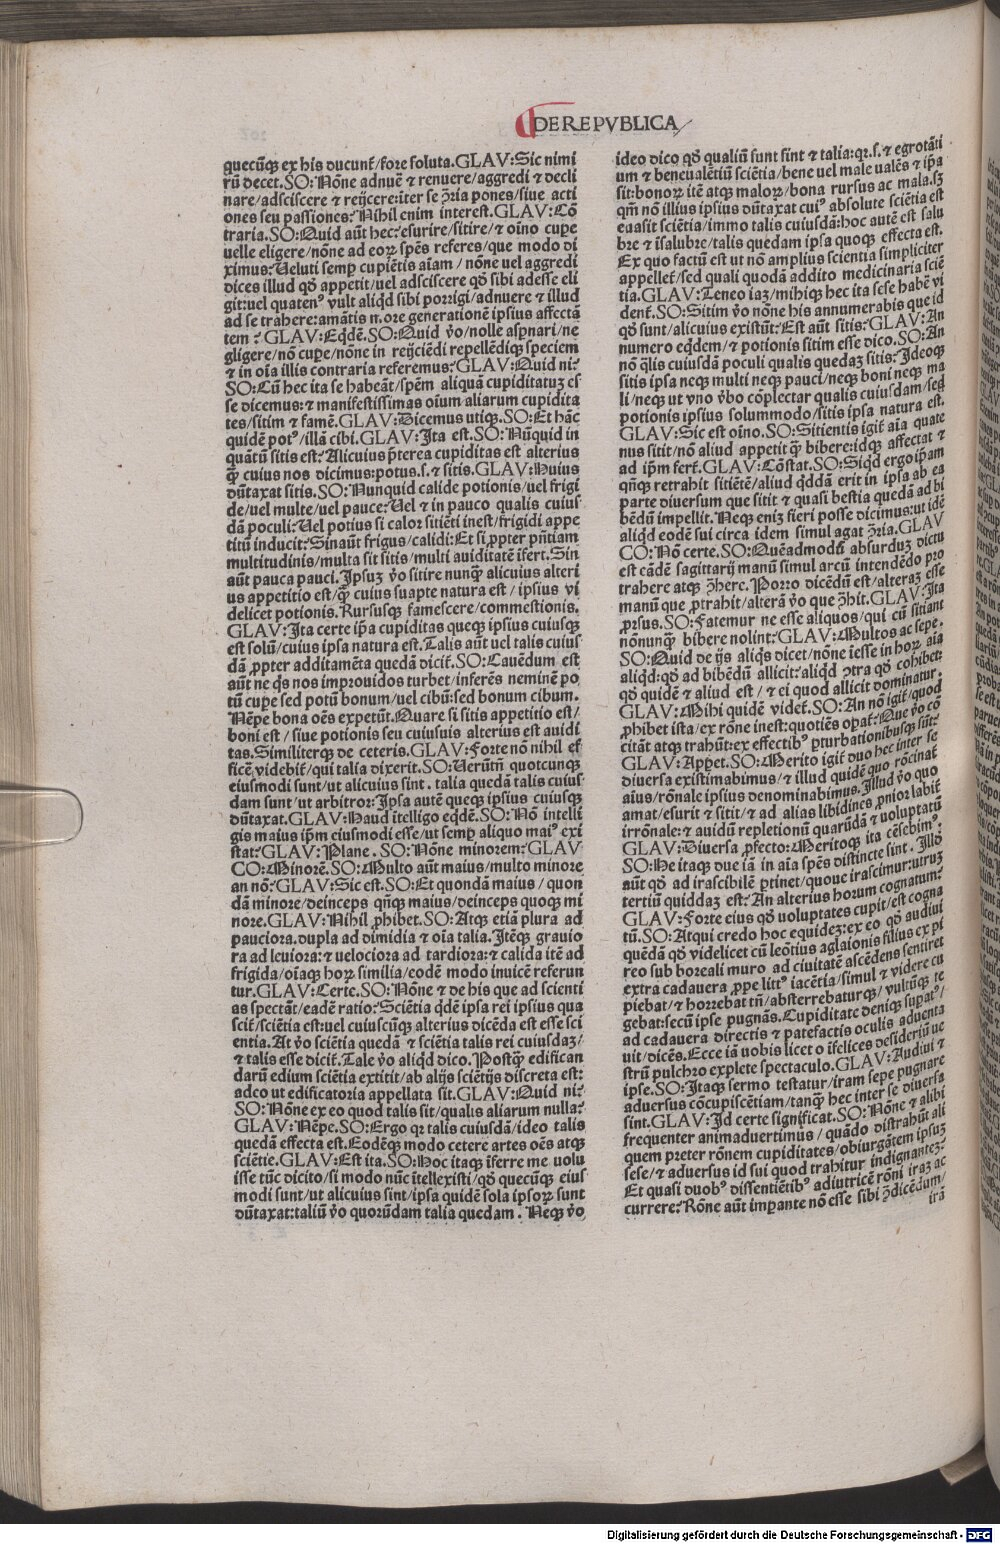 DE REPVBLICA
quecũqȝ ex his ducunt᷑/fore soluta.GLAV:Sic nimi
rũ decet.SO:Nõne adnuẽ ⁊ renuere/aggredi ⁊ decli
nare/adsciscere ⁊ reijcere:iter se ꝯ̃ria pones/siue acti
ones seu passiones:Nihil enim interest.GLAV:Cõ
traria.SO:Quid aũt hec:esurire/sitire/⁊ oĩno cupe
uelle eligere/nõne ad eoꝝ spẽs referes/que modo di
ximus:Veluti semꝑ cupiẽtis aĩam/nõne uel aggredi
dices illud qð appetit/uel adsciscere qð sibi adesse eli
git:uel quaten᷒ vult aliqd sibi porrigi/adnuere ⁊ illud
ad se trahere:amãtis more generationẽ ipsius affectã
tem:GLAV:Eqdẽ.SO:Quid ṽo/nolle aspnari/ne
gligere/nõ cupe/nõne in reijciẽdi repellẽdiqȝ speciem
⁊ in oĩa illis contraria referemus:GLAV:Quid ni:
SO:Cũ hec ita se habeãt/spẽm aliquã cupiditatuȝ es
se dicemus:⁊ manifestissimas oĩum/aliarum cupidita
tes/sitim ⁊ famẽ.GLAV:Dicemus utiqȝ.SO:Et hãc
quidẽ pot᷒/illã cibi.GLAV:Ita est.SO:Nũquid in
quãtũ sitis est:Alicuius p̃terea cupiditas est alterius
q̃ȝ cuius nos dicimus:potus.s.⁊ sitis.GLAV:Huius
dũtaxat sitis.SO:Nunquid calide potionis/uel frigi
de/uel multe/uel pauce:Vel ⁊ in pauco qualis cuius
dã poculi:Vel potius si caloꝛ sitiẽti inest/frigidi appe
titũ inducit:Sinaũt frigus/calidi:Et si ꝓpter pñtiam
multitudinis/multa sit sitis/multi auiditatẽ ĩfert.Sin
aũt pauca pauci.Ipsuȝ ṽo sitire nunq̃ȝ alicuius alteri
us appetitio est/q̃ȝ cuius suapte natura est/ipsius vi
delicet potionis.Rursusqȝ famescere/commestionis.
GLAV:Ita certe ip̃a cupiditas queqȝ ipsius cuiusqȝ
est solũ/cuius ipsa natura est.Talis aũt uel talis cuius
dã ꝓpter additamẽta quedã dicit᷑.SO:Cauẽdum est
aũt ne qs nos improuidos turbet/inferẽs neminẽ po
tũ cupe sed potũ bonum/uel cibũ:sed bonum cibum.
Nẽpe bona oẽs expetũt.Quare si sitis appetitio est/
boni est/siue potionis seu cuiusuis alterius est auidi
tas.Similiterqȝ de ceteris.GLAV:Forte nõ nihil ef
ficẽ videbit᷑/qui talia dixerit.SO:Verũtñ quotcunqȝ
eiusmodi sunt/ut alicuius sint.talia quedã talis cuius
dam sunt/ut arbitror:Ipsa autẽ queqȝ ipsius cuiusqȝ
dũtaxat.GLAV:Haud ĩtelligo eqdẽ.SO:Nõ intelli
gis maius ip̃m eiusmodi esse/ut semꝑ aliquo mai᷒ exi
stat:GLAV:Plane.SO:Nõne minorem:GLAV
CO:Minorẽ.SO:Multo aũt maius/multo minore
an nõ:GLAV:Sic est.SO:Et quondã maius/quon
dã minore/deinceps qñqȝ maius/deinceps quoqȝ mi
nore.GLAV:Nihil ꝓhibet.SO:Atqȝ etiã plura ad
pauciora.dupla ad dimidia ⁊ oĩa talia.Itẽqȝ grauio
ra ad leuiora:⁊ velociora ad tardiora:⁊ calida itẽ ad
frigida/oĩaqȝ hoꝝ similia/eodẽ modo inuicẽ referun
tur.GLAV:Certe.SO:Nõne ⁊ de his que ad scienti
as spectãt/eadẽ ratio:Sciẽtia qdẽ ipsa rei ipsius qua
scit᷑/sciẽtia est:uel cuiuscũqȝ alterius dicẽda est esse sci
entia.At ṽo sciẽtia quedã ⁊ sciẽtia talis rei cuiusdaȝ/
⁊ talis esse dicit᷑.Tale ṽo aliqd dico.Postq̃ȝ edifican
darũ edium sciẽtia extitit/ab alijs sciẽtijs discreta est:
adeo ut edificatoria appellata sit.GLAV:Quid ni:
SO:Nõne ex eo quod talis sit/qualis aliarum nulla:
GLAV:Nẽpe.SO:Ergo qꝛ talis cuiusdã/ideo talis
quedã effecta est.Eodẽqȝ modo cetere artes oẽs atqȝ
sciẽtie.GLAV:Est ita.SO:Hoc itaqȝ ĩferre me uolu
isse tũc dicito/si modo nũc ĩtellexisti/qð quecũqȝ eius
modi sunt/ut alicuius sint/ipsa quidẽ sola ipsoꝝ sunt
dũtaxat:taliũ ṽo quorũdam talia quedam.Neqȝ ṽo
ideo dico qð qualiũ sunt sint ⁊ talia:qꝛ.s.⁊ egrotãti
um ⁊ beneualẽtiũ sciẽtia/bene uel male ualẽs ⁊ ip̃a
sit:bonoꝝ itẽ atqȝ maloꝝ/bona rursus ac mala.sȝ
qm̃ nõ illius ipsius dũtaxat cui᷒ absolute sciẽtia est
ea asit sciẽtia/immo talis cuiusdã:hoc autẽ est salu
bre ⁊ ĩsalubre/talis quedam ipsa quoqȝ effecta est.
Ex quo factũ est ut nõ amplius scientia simpliciter
appellet᷑/sed quali quodã addito medicinaria sciẽ
tia.GLAV:Teneo iaȝ/mihiqȝ hec ita sese habẽ vi
dent᷑.SO:Sitim ṽo nõne his annumerabis que id
qð sunt/alicuius existũt:Est aũt sitis:GLAV:An
numero eqdem/⁊ potionis sitim esse dico.SO:An
nõ q̃lis cuiusdã poculi qualis quedaȝ sitis:Ideoqȝ
sitis ipsa neqȝ multi neqȝ pauci/neqȝ boni neqȝ ma
li/neqȝ ut vno ṽbo cõplectar qualis cuiusdam/sed
potionis ipsius solummodo/sitis ipsa natura est.
GLAV:Sic est oĩno.SO:Sitientis igit᷑ aĩa quate
nus sitit/nõ aliud appetit q̃ȝ bibere:idqȝ affectat ⁊
ad ip̃m fert᷑.GLAV:Cõstat.SO:Siqd ergo ip̃am
qñqȝ retrahit sitiẽtẽ/aliud qddã erit in ipsa ab ea
parte diuersum que sitit ⁊ quasi bestia quedã ad bi
bẽdũ impellit.Neqȝ eniȝ fieri posse dicimus:ut idẽ
aliqd eodẽ sui circa idem simul agat ꝯ̃ria.GLAV
CO:Nõ certe.SO:Quẽadmodũ absurduȝ dictu
est eãdẽ sagittarij manũ simul arcũ intendẽdo pro
trahere atqȝ ꝯ̃here.Porro dicẽdũ est/alteraȝ esse
manũ que ꝓtrahit/alterã ṽo que ꝯ̃hit.GLAV:Ita
ꝓrsus.SO:Fatemur ne esse aliquos/qui cũ sitiant
nõnunqȝ bibere nolint:GLAV:Multos ac sepe.
SO:Quid de ijs aliqs dicet/nõne ĩesse in hoꝝ aĩa
aliqd:qð ad bibẽdũ allicit:aliqd ꝯtra qð cohibet:
qð quidẽ ⁊ aliud est/⁊ ei quod allicit dominatur.
GLAV:Mihi quidẽ videt᷑.SO:An nõ igit᷑/quod
ꝓhibet ista/ex rõne inest:quotiẽs opat᷑:Que ṽo cõ
citãt atqȝ trahũt:ex effectib᷒ ꝑturbationibusqȝ sũt:
GLAV:Apꝑet.SO:Merito igit᷑ duo hec inter se
diuersa existimabimus/⁊ illud quidẽ quo rõcinat᷑
aius/rõnale ipsius denominabimus.Illud ṽo quo
amat/esurit ⁊ sitit/⁊ ad alias libidines ꝓnior labit᷑
irrõnale:⁊ auidũ repletionũ quarũdã ⁊ uoluptatũ
GLAV:Diuersa ꝓfecto:Meritoqȝ ita cẽsebim᷒.
SO:He itaqȝ due iã in aĩa spẽs distincte sint.Illd
aũt qð ad irascibilẽ ꝑtinet/quoue irascimur:utruȝ
tertiũ quiddaȝ est:An alterius horum cognatum:
GLAV:Forte eius qð uoluptates cupit/est cogna
tũ.SO:Atqui credo hoc equideȝ:ex eo qð audiui
quẽdã qð videlicet cũ leõtius aglaionis filius ex pi
reo sub boreali muro ad ciuitatẽ ascẽdens sentiret
extra cadauera ꝓpe litt᷒ iacẽtia/simul ⁊ videre cu
piebat/⁊ horrebat tñ/absterrebaturqȝ/vultũqȝ te
gebat:secũ ipse pugnãs.Cupiditate deniqȝ supat᷒/
ad cadauera directis ⁊ patefactis oculis aduenta
uit/dicẽs.Ecce iã uobis licet o ĩfelices desideriũ ue
strũ pulchro explete spectaculo.GLAV:Audiui ⁊
ipse.SO:Itaqȝ sermo testatur/iram sepe pugnare
aduersus cõcupiscẽtiam/tanq̃ȝ hec inter se diuersa
sint.GLAV:Id certe significat.SO:Nõne ⁊ alibi
frequenter animaduertimus/quãdo distrahũt ali
quem preter rõnem cupiditates/obiurgãtem ipsuȝ
sese/⁊ aduersus id sui quod trahitur indignanteȝ:
Et quasi duob᷒ dissentiẽtib᷒ adiutricẽ rõni iraȝ ac
currere:Rõne aũt imꝑante nõ esse sibi ꝯ̃dicẽdum/
irã
Digitalisierung gefördert durch die Deutsche Forschungsgemeinschaft - DFG